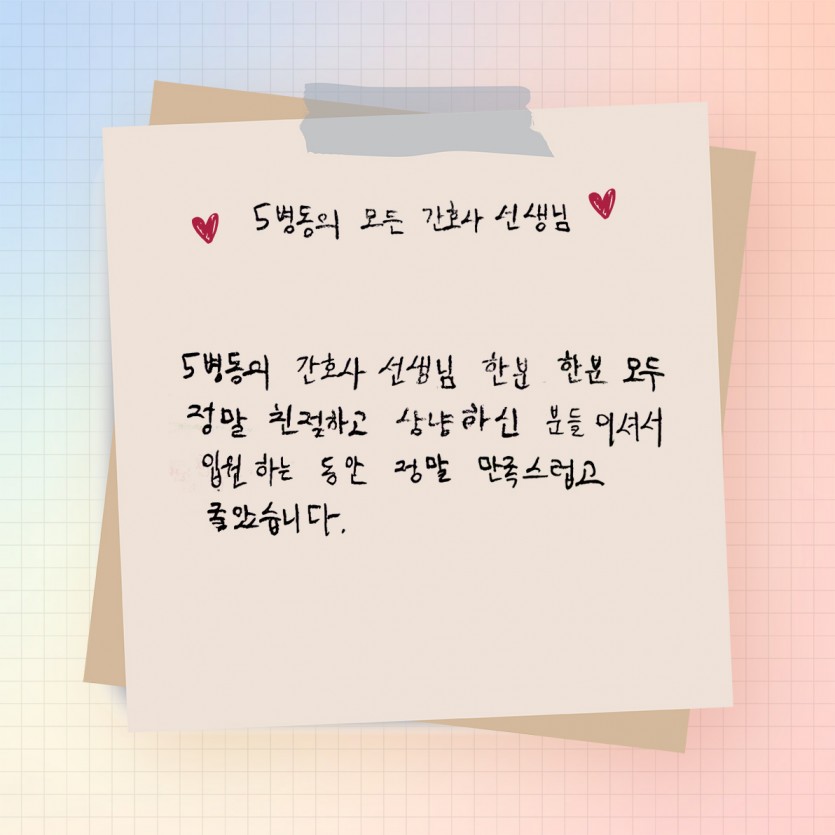 5병동의 모든 간호사 선생님
5병동의 간호사 선생님 한분 한분 모두
정말 친절하고 상냥하신 분들이셔서
입원하는 동안 정말 만족스럽고
좋았습니다.